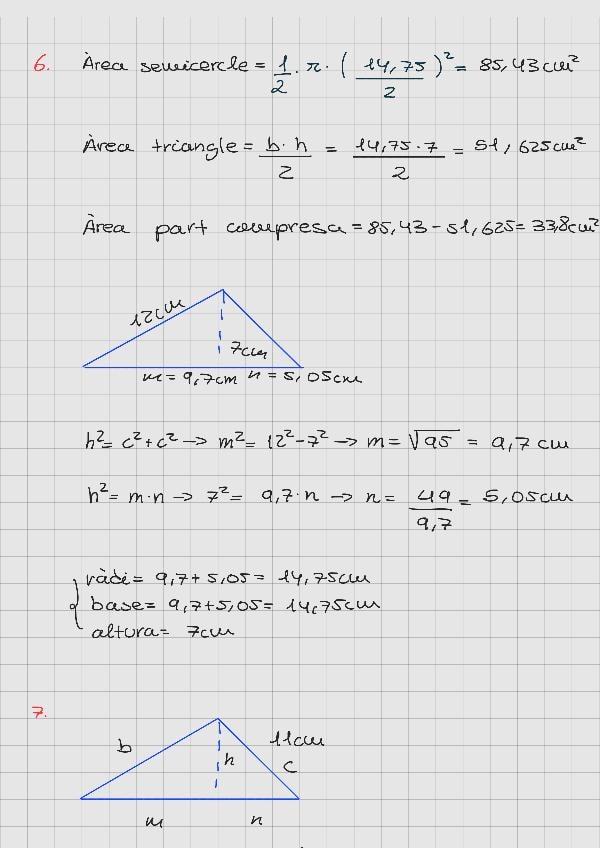 6. Àrea semicercle = 1/2 · π · (14,75/2)² = 85,43 cm²
Àrea triangle = b·h/2 = 14,75·7/2 = 51,625 cm²
Àrea part compresa = 85,43 - 51,625 = 33,8 cm²
12cm
7cm
m = 9,7cm n = 5,05cm
h² = c² + c² → m² = 12² - 7² → m = √95 = 9,7 cm
h² = m·n → 7² = 9,7·n → n = 49/9,7 = 5,05cm
ràdi = 9,7 + 5,05 = 14,75cm
base = 9,7 + 5,05 = 14,75cm
altura = 7cm
7.
b h 11cm
c
m n